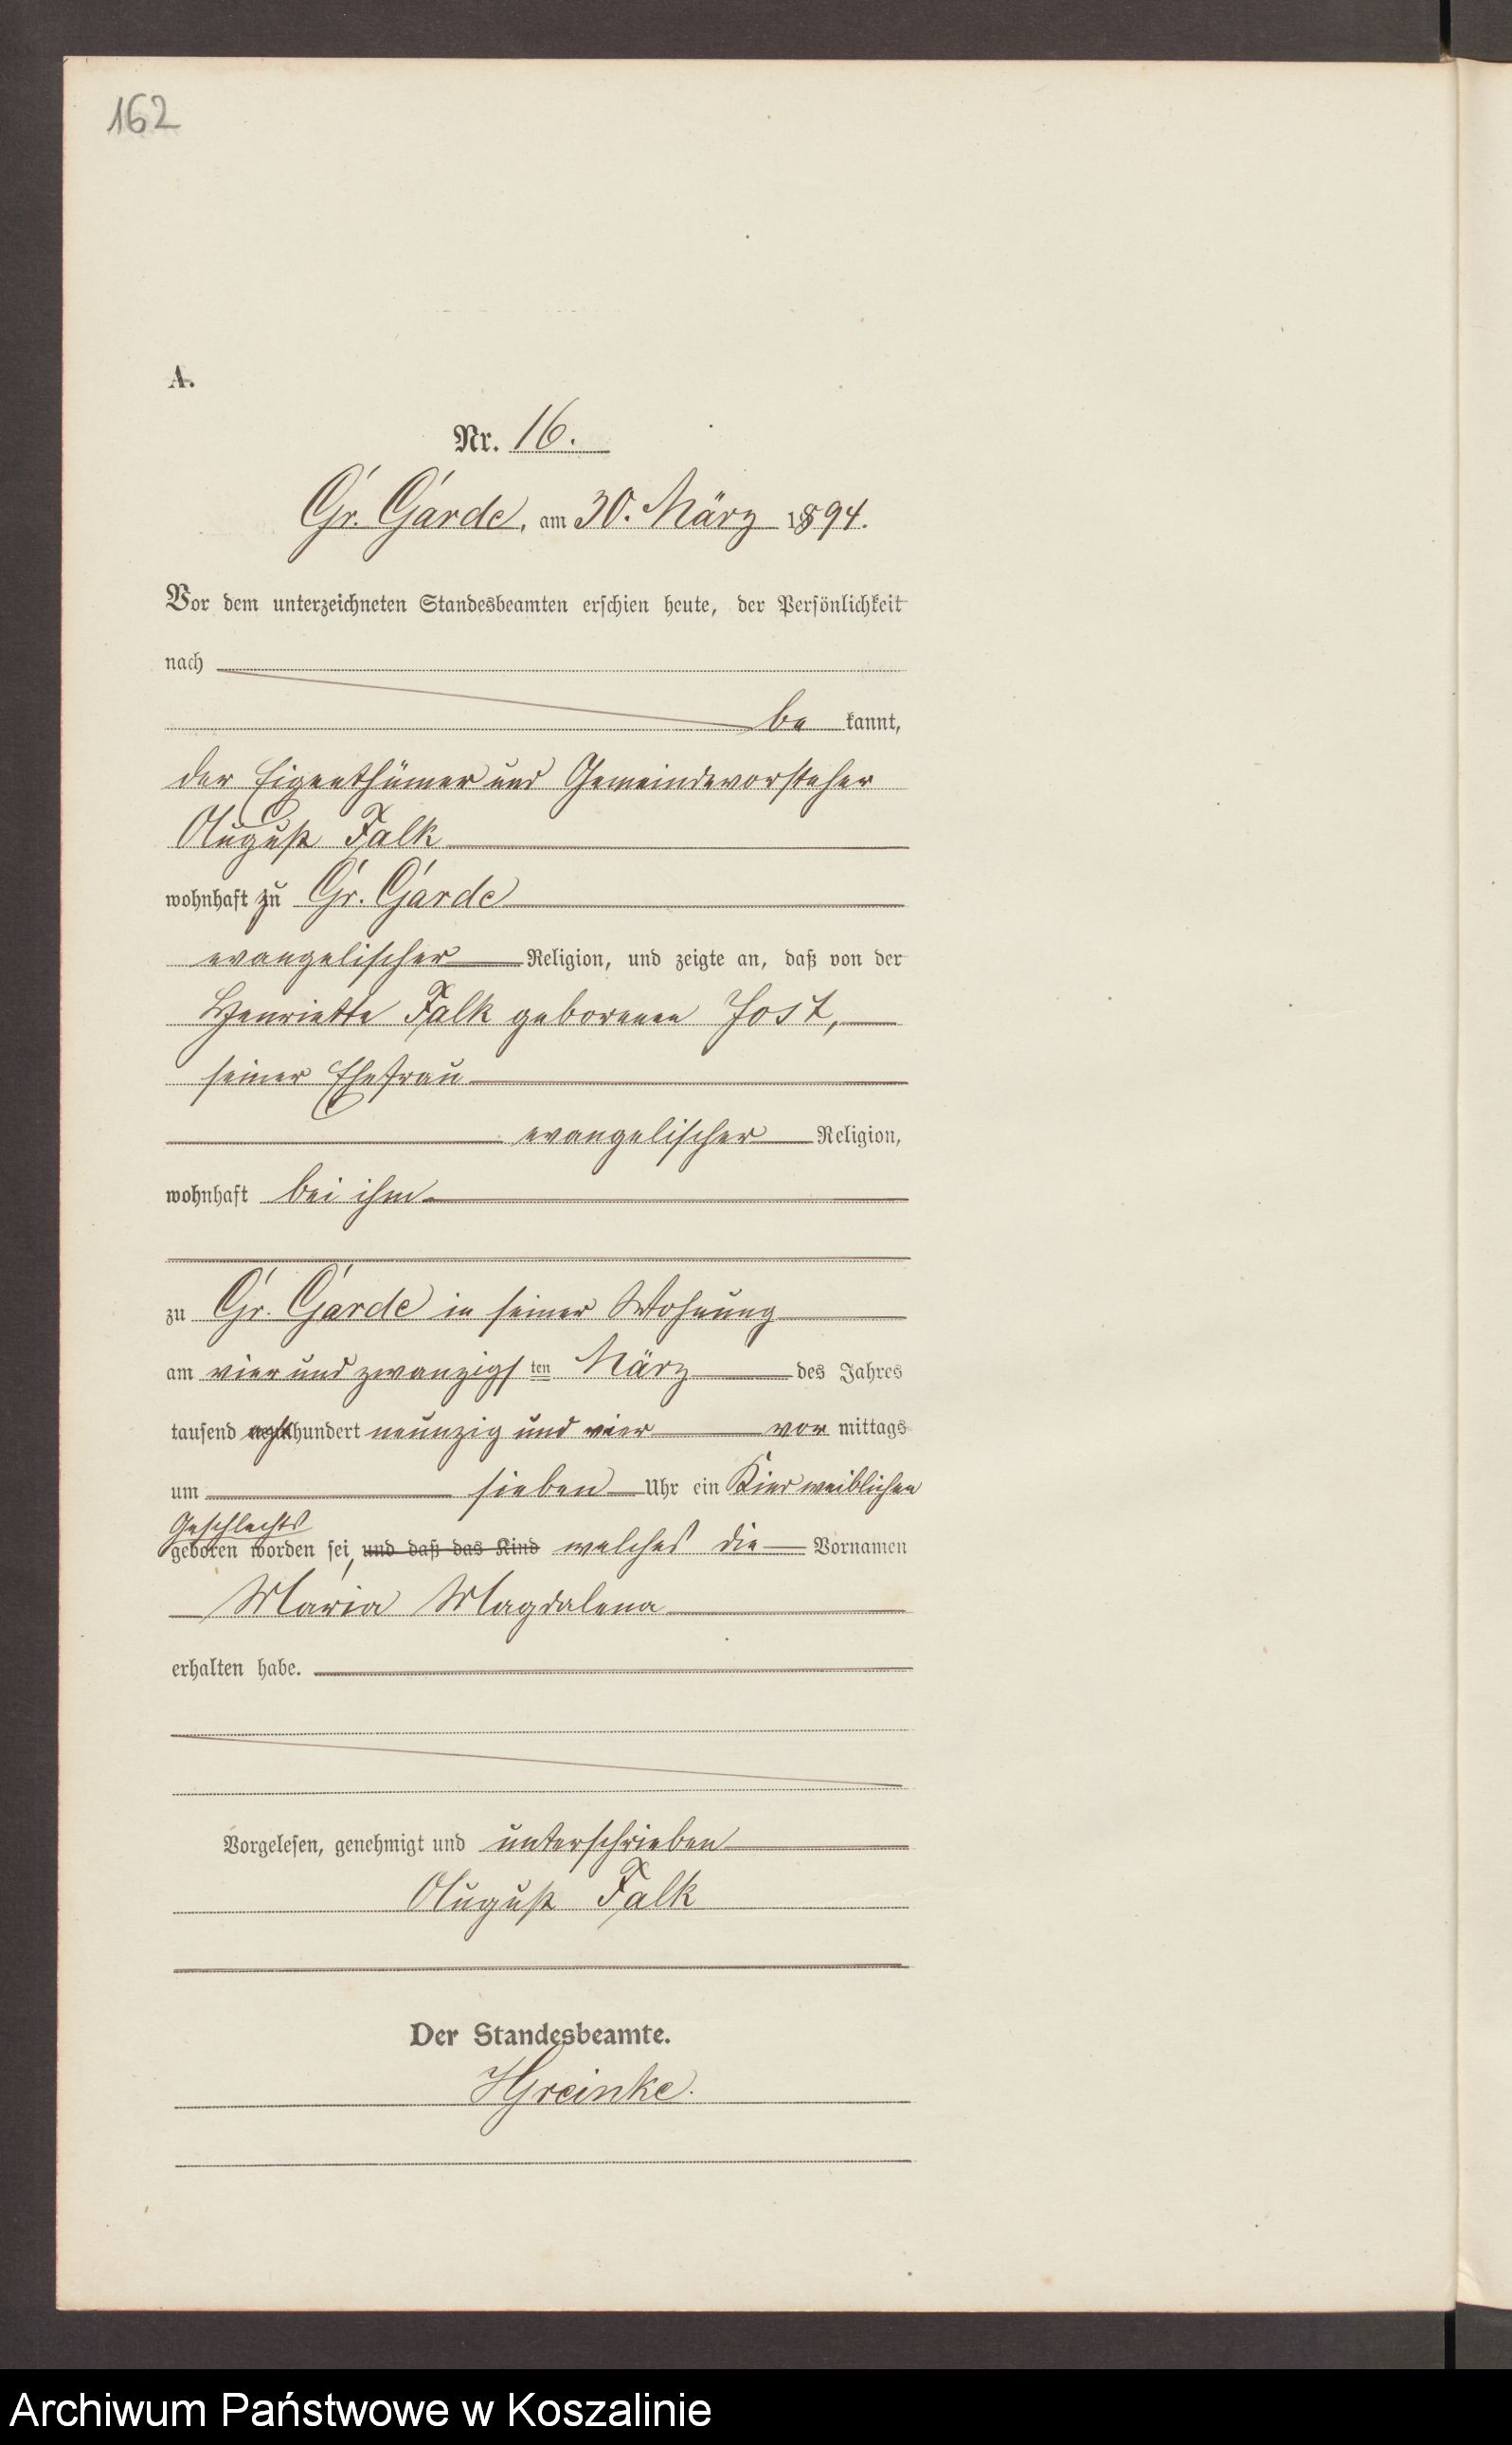 162
A.
Nr. 16.
Gr. Garde, am 30. März 1894.
Vor dem unterzeichneten Standesbeamten erschien heute, der Persönlichkeit
nach
be kannt,
der Eigenthümer und Gemeindevorsteher
August Falk
wohnhaft zu Gr. Garde
evangelischer Religion, und zeigte an, daß von der
Henriette Falk geborenen Jost,
seiner Ehefrau
evangelischer Religion,
wohnhaft bei ihm
zu Gr. Garde in seiner Wohnung
am vier und zwanzigsten März des Jahres
tausend achthundert neunzig und vier vor mittags
um sieben Uhr ein Kind weiblichen
Geschlechts
geboren worden sei, und daß das Kind welches die Vornamen
Maria Magdalena
erhalten habe.
Vorgelesen, genehmigt und unterschrieben
August Falk
Der Standesbeamte.
Archiwum Państwowe w Koszalinie